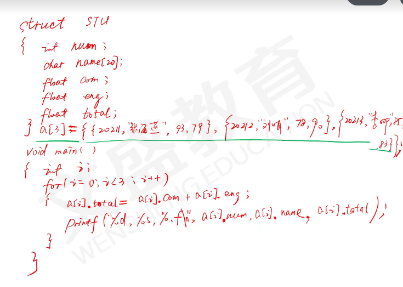 struct STU
{ int num;
char name[20];
float com;
float eng;
float total;
} a[3]={{20211,"张孟蓝",93,79},{20212,"",78,90},{20213,"李",
83}};
void main()
{ int i;
for(i=0;i<3;i++)
{ a[i].total=a[i].com+a[i].eng;
printf(%d,%s,%.f\n",a[i].num,a[i].name,a[i].total);
}
}